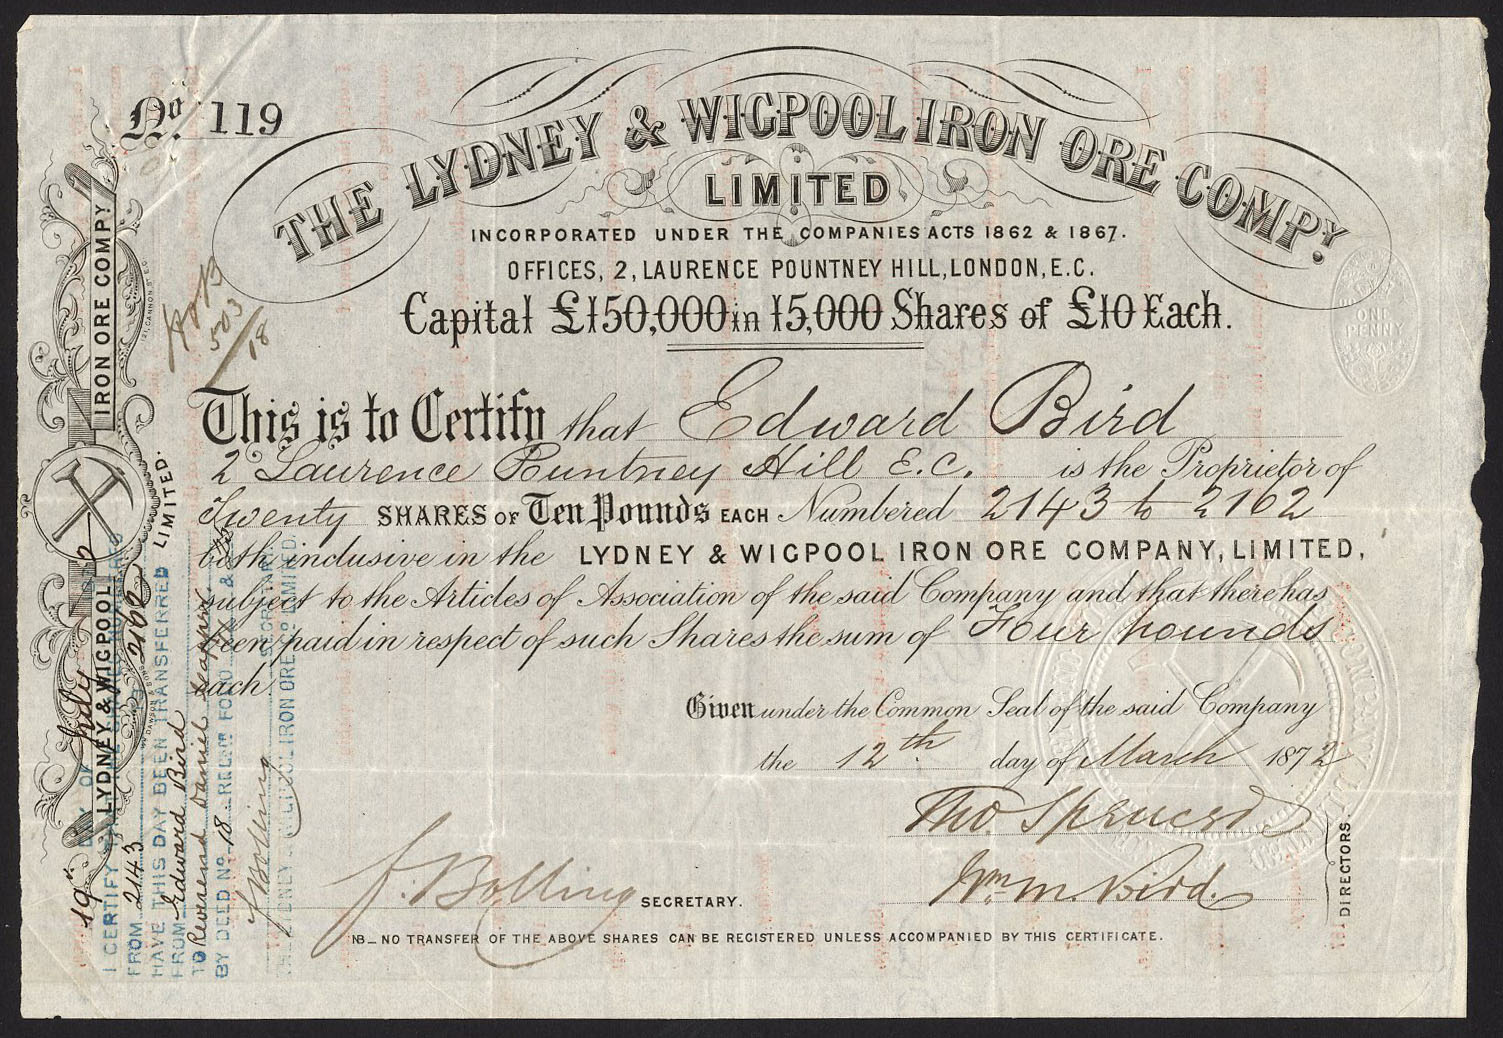 No. 119
THE LYDNEY & WIGPOOL IRON ORE COMPY.
LIMITED
INCORPORATED UNDER THE COMPANIES ACTS 1862 & 1867.
OFFICES, 2, LAURENCE POUNTNEY HILL, LONDON, E.C.
Capital £150,000 in 15,000 Shares of £10 Each.
ONE PENNY
503/18
This is to Certify that Edward Bird
2 Laurence Pountney Hill E.C. is the Proprietor of
Twenty SHARES OF Ten Pounds EACH Numbered 2143 to 2162
both inclusive in the LYDNEY & WIGPOOL IRON ORE COMPANY, LIMITED,
subject to the Articles of Association of the said Company and that there has
been paid in respect of such Shares the sum of Four pounds
each.
Given under the Common Seal of the said Company
the 12th day of March 1872
Tho Spencer
Wm. M. Bird.
DIRECTORS.
J. Bolling SECRETARY.
NB_ NO TRANSFER OF THE ABOVE SHARES CAN BE REGISTERED UNLESS ACCOMPANIED BY THIS CERTIFICATE.
LYDNEY & WIGPOOL IRON ORE COMPY
LIMITED.
19th DAY OF July
I CERTIFY
FROM 2143 2162
HAVE THIS DAY BEEN TRANSFERRED
FROM Edward Bird
TO Reverend Daniel
BY DEED No. 18 FOLIO
J Bolling
SECRETARY
LYDNEY & WIGPOOL IRON ORE Co. LIMITED.